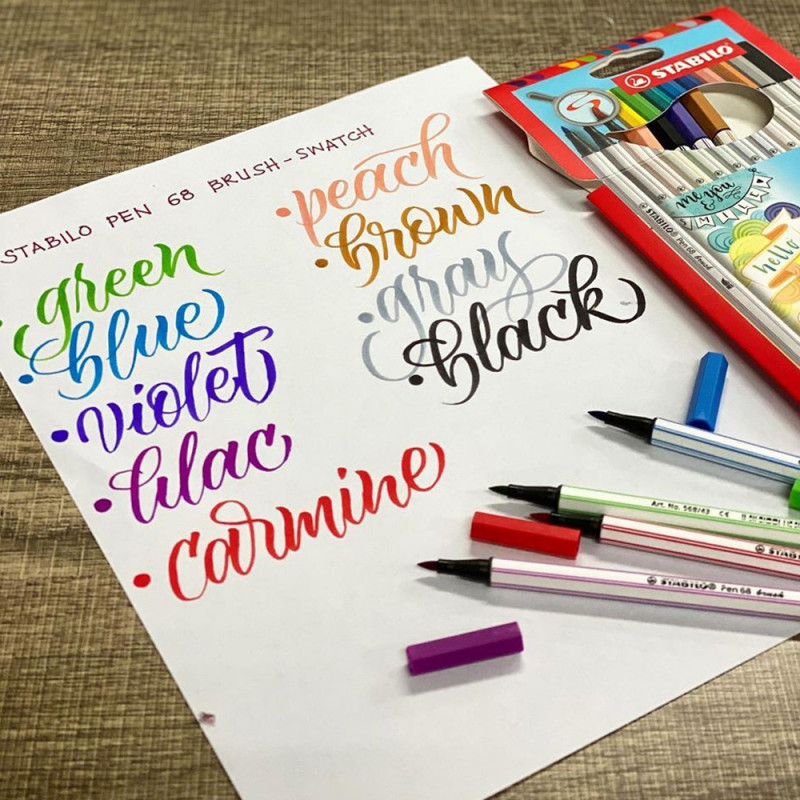 STABILO PEN 68 BRUSH-SWATCH
green
blue
violet
lilac
carmine
peach
brown
gray
black
STABILO
me you
&
hello
STABILO® Pen 68 brush
Art. No. 568/43 CE
STABILO® Pen 68 brush